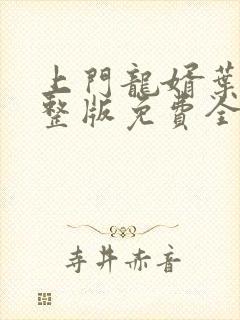 上門龍婿葉
整版免費全
寺井赤音